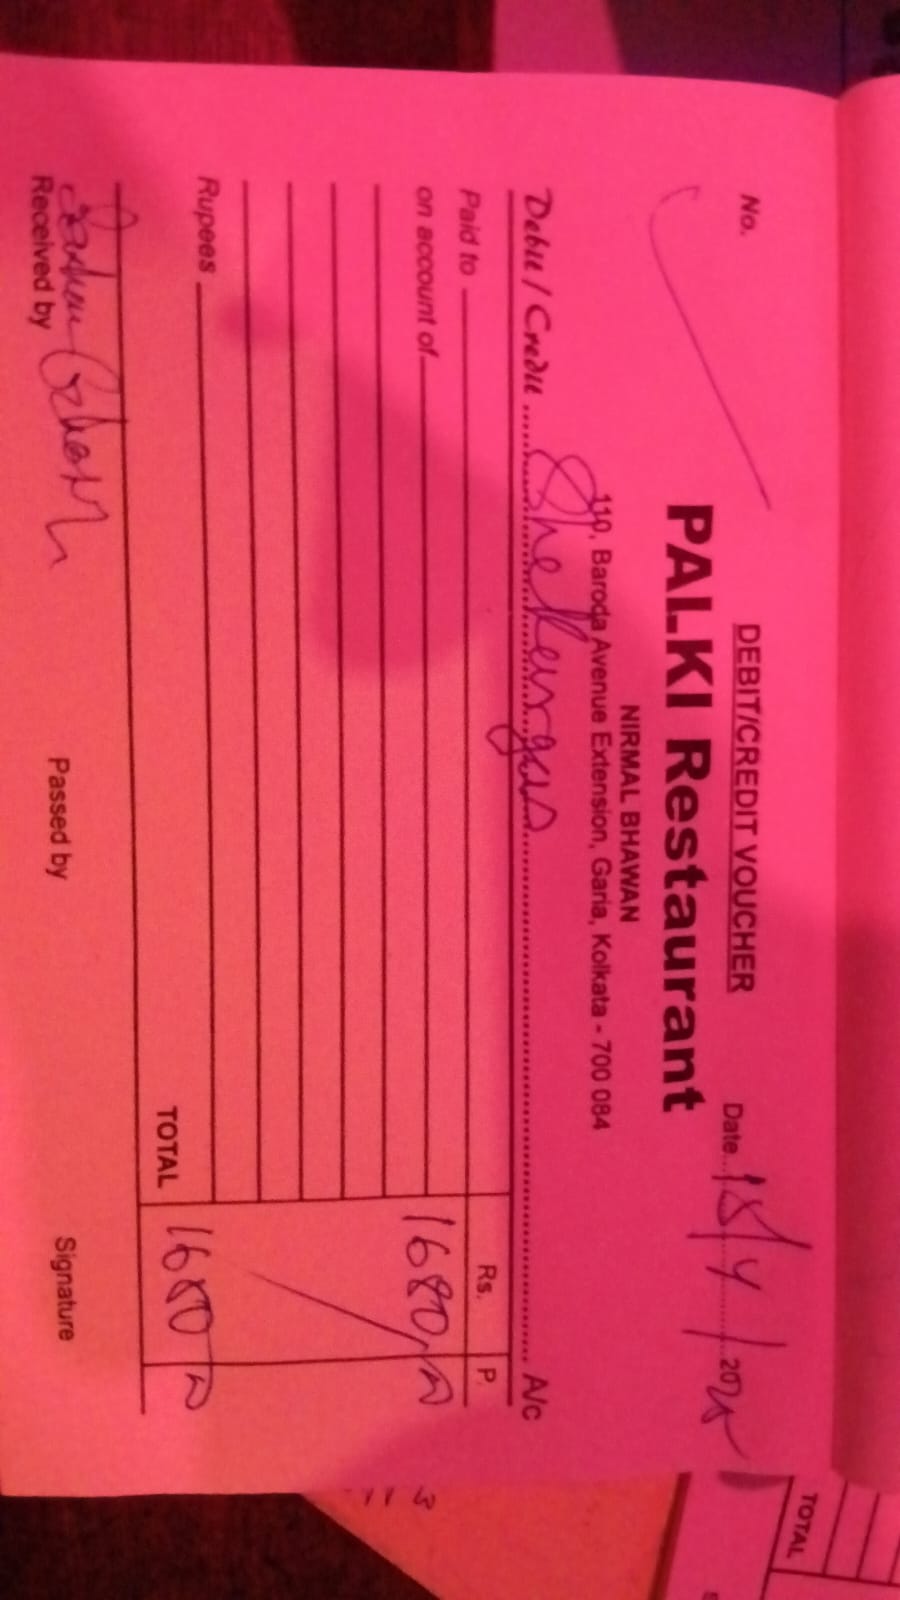 DEBIT/CREDIT VOUCHER
No. Date 18/4/2025
PALKI Restaurant
NIRMAL BHAWAN
110, Baroda Avenue Extension, Garia, Kolkata - 700 084
Debit / Credit A/c
Paid to Rs. P.
on account of 1680
Rupees
TOTAL 1680
Received by Passed by Signature
TOTAL